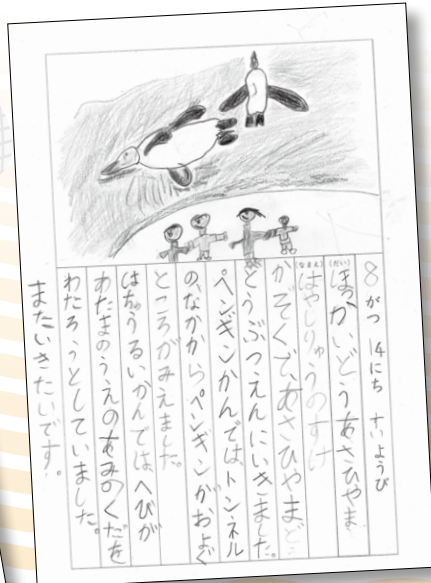 8がつ14にち すいようび
(だい)
ほっかいどうあさひやま
(なまえ)
はやしりゅうのすけ
かぞくで、あさひやまど
うぶつえんにいきました。
ペンギンかんでは、トンネル
の、なかからペンギンがおよぐ
ところがみえました。
はちゅうるいかんでは、へびが
あたまのうえのあみのくだを
わたろうとしていました。
またいきたいです。